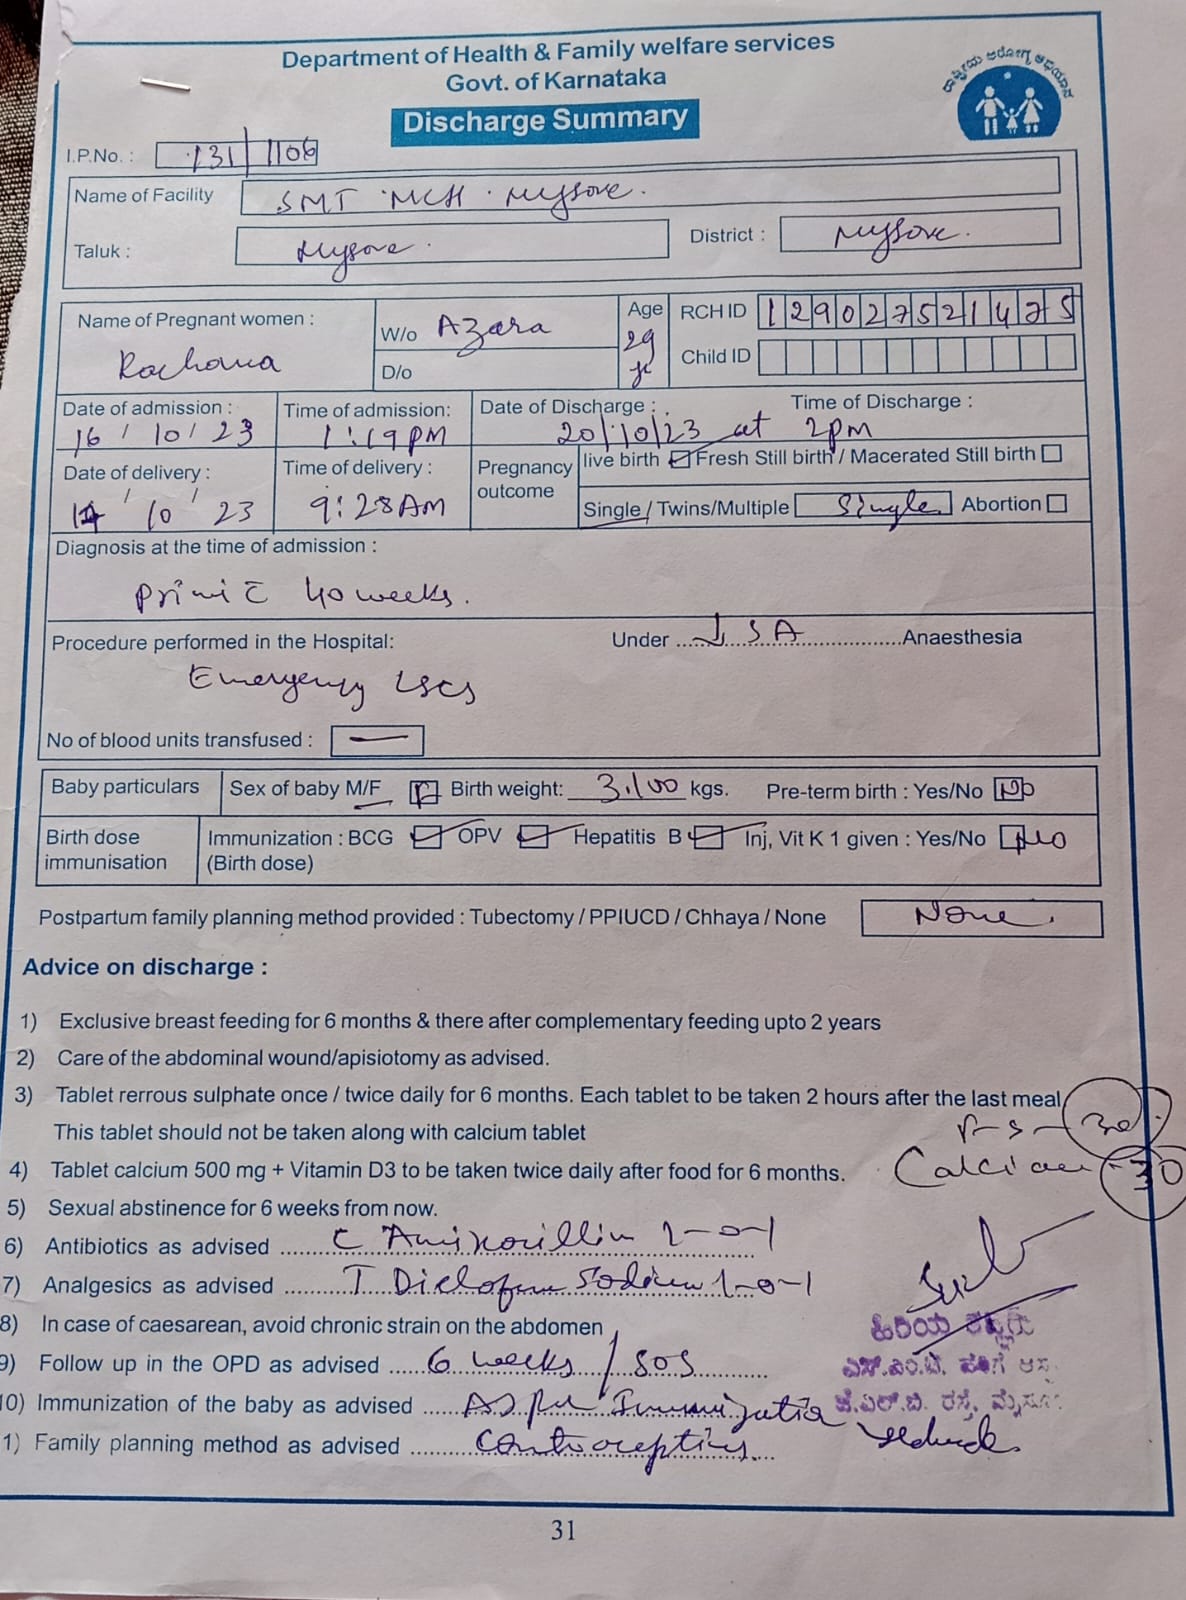 Department of Health & Family welfare services
Govt. of Karnataka
Discharge Summary
ರಾಷ್ಟ್ರೀಯ ಆರೋಗ್ಯ ಅಭಿಯಾನ
I.P.No. : 131/1106
Name of Facility SMT MCH Mysore.
Taluk : Mysore. District : Mysore.
Name of Pregnant women : W/o Azara Age 29 yr RCH ID 129027521475
Rachana D/o Child ID
Date of admission : Time of admission: Date of Discharge : Time of Discharge :
16/10/23 1:19PM 20/10/23 at 2pm
Date of delivery : Time of delivery : Pregnancy outcome live birth Fresh Still birth / Macerated Still birth
10 23 9:28AM Single / Twins/Multiple Single Abortion
Diagnosis at the time of admission :
Primi c̄ 40 weeks.
Procedure performed in the Hospital: Under SA Anaesthesia
Emergency LSCS
No of blood units transfused : —
Baby particulars Sex of baby M/F Birth weight: 3.100 kgs. Pre-term birth : Yes/No No
Birth dose immunisation Immunization : BCG OPV Hepatitis B Inj, Vit K 1 given : Yes/No No
(Birth dose)
Postpartum family planning method provided : Tubectomy / PPIUCD / Chhaya / None None.
Advice on discharge :
1) Exclusive breast feeding for 6 months & there after complementary feeding upto 2 years
2) Care of the abdominal wound/apisiotomy as advised.
3) Tablet rerrous sulphate once / twice daily for 6 months. Each tablet to be taken 2 hours after the last meal
This tablet should not be taken along with calcium tablet F-S - 30
4) Tablet calcium 500 mg + Vitamin D3 to be taken twice daily after food for 6 months. Calcium - 30
5) Sexual abstinence for 6 weeks from now.
6) Antibiotics as advised C Amixocillin 1-0-1
7) Analgesics as advised T Diclofenac Sodium 1-0-1
8) In case of caesarean, avoid chronic strain on the abdomen
9) Follow up in the OPD as advised 6 weeks / SOS
10) Immunization of the baby as advised As per Immunization
11) Family planning method as advised Contraceptive
ಹಿರಿಯ ತಜ್ಞರು
ಎಸ್.ಎಂ.ಟಿ. ಹೆರಿಗೆ ಆಸ್ಪ
ಜೆ.ಎಲ್.ಬಿ. ರಸ್ತೆ, ಮೈಸೂರು
31